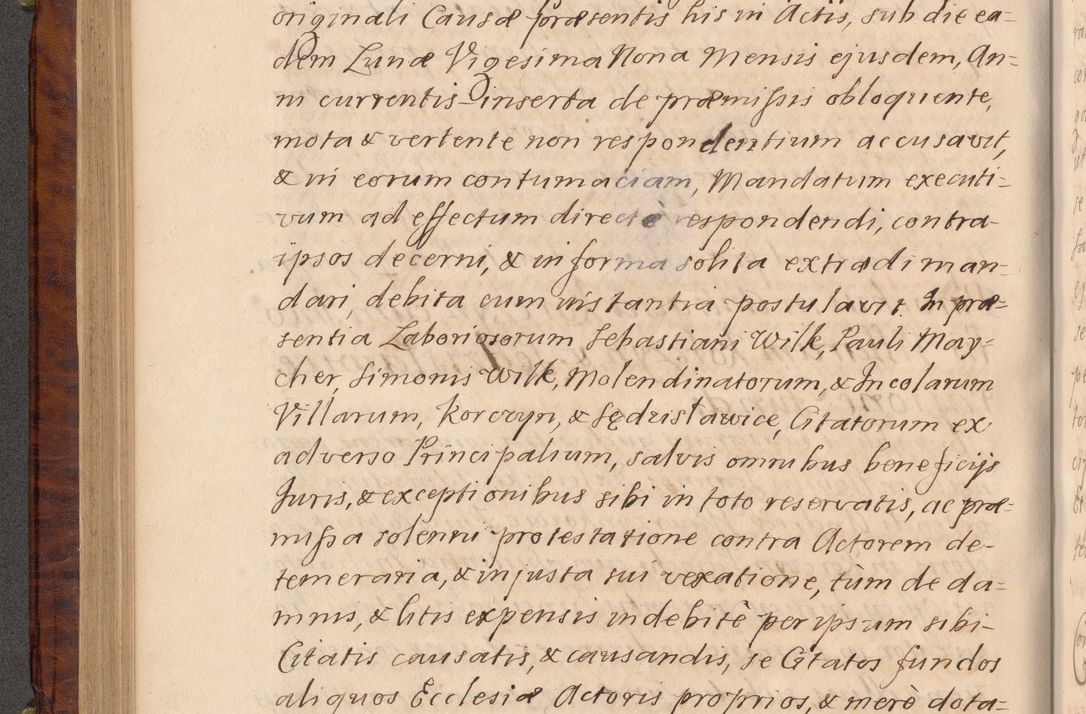 originali Causæ præsentis his in Actis, sub die ea=
dem Lunæ Vigesima Nona Mensis ejusdem, An=
ni currentis inserta de præmissis obloquente,
mota & vertente non respondentium accusavit,
& in eorum contumaciam, Mandatum executi=
vum ad effectum directè respondendi, contra
ipsos decerni, & in forma solita extradi man=
dari, debita cum instantia postulavit In præ=
sentia Laboriosorum Sebastiani Wilk, Pauli May=
cher Simonis Wilk, Molendinatorum, & Incolarum
Villarum, Korczyn, & Sędzisławice, Citatorum ex
adverso Principalium, salvis omnibus beneficijs
Juris, & exceptionibus sibi in toto reservatis, ac præ=
missa solenni protestatione contra Actorem de-
temeraria, & injusta sui vexatione, tùm de da=
mnis, & litis expensis indebitè per ipsum sibi-
Citatis causatis, & causandis, se Citatos fundos
aliquos Ecclesiæ Actoris proprios, & merè dota=